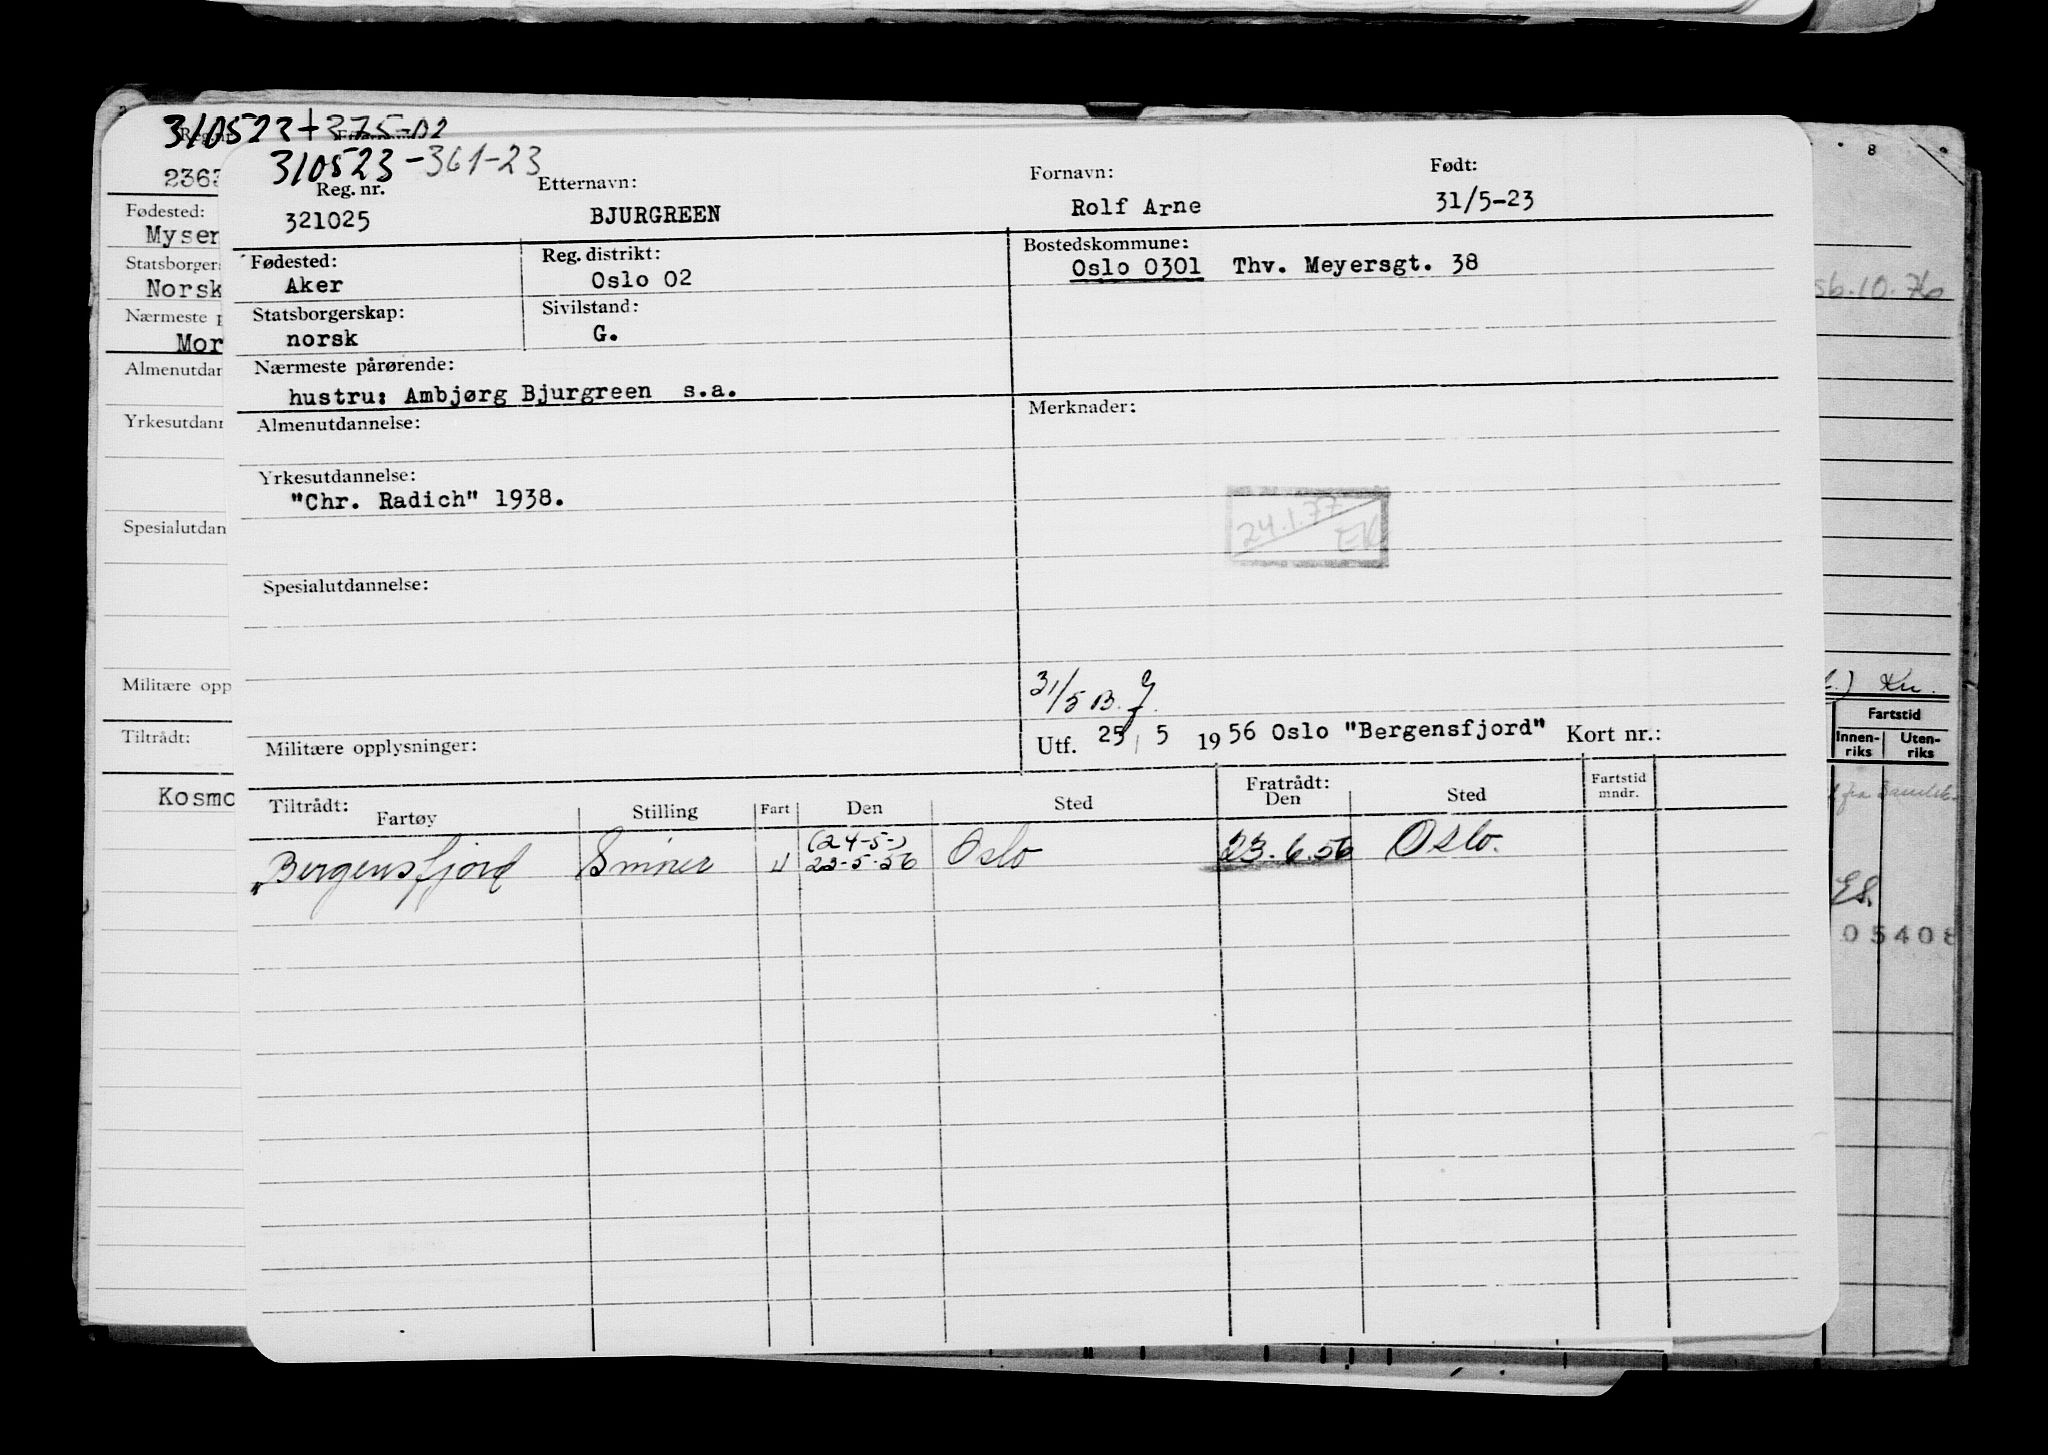 310523+375-02
Reg. nr.
2363
Fødested:
Mysen
Statsborgers
Norsk
Nærmeste p
Mor
Almenutdan
Yrkesutdann
Spesialutdan
Militære opp
Tiltrådt:
Kosmo
310523-361-23
Reg. nr. Etternavn: Fornavn: Født:
321025 BJURGREEN Rolf Arne 31/5-23
Fødested: Reg. distrikt: Bostedskommune:
Aker Oslo 02 Oslo 0301 Thv. Meyersgt. 38
Statsborgerskap: Sivilstand:
norsk G.
Nærmeste pårørende:
hustru: Ambjørg Bjurgreen s.a.
Almenutdannelse: Merknader:
Yrkesutdannelse:
"Chr. Radich" 1938.
24.1.77
EK
Spesialutdannelse:
31/5 B. J.
Militære opplysninger: Utf. 25 / 5 1956 Oslo "Bergensfjord" Kort nr.:
Tiltrådt: Fratrådt: Fartstid
Fartøy Stilling Fart Den Sted Den Sted mndr.
(24-5-)
"Bergensfjord Smører U 23-5-56 Oslo 23.6.56 Oslo.
8
56.10.76
Kn.
Fartstid
Innen- Uten-
riks riks
fra
ES.
05408